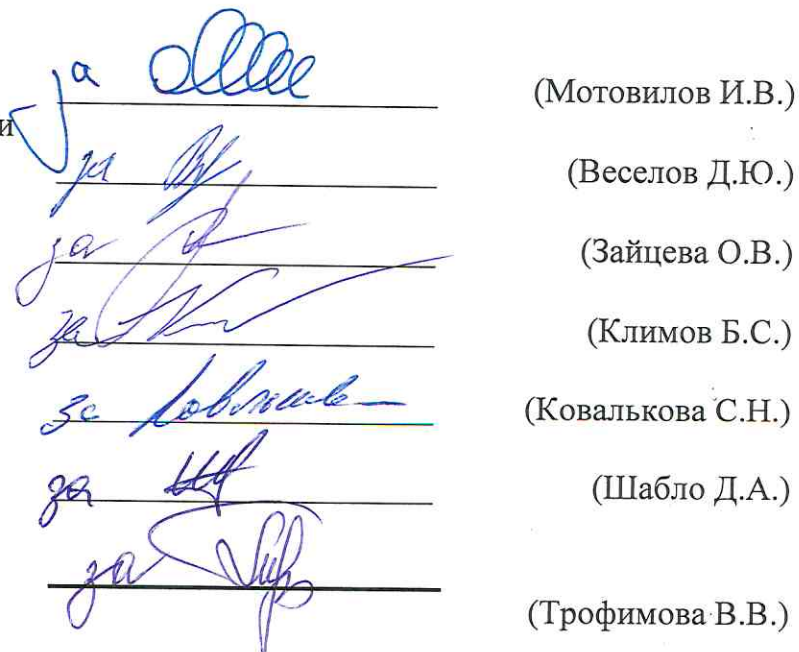 за (Мотовилов И.В.)
и
за (Веселов Д.Ю.)
за (Зайцева О.В.)
за (Климов Б.С.)
за (Ковалькова С.Н.)
за (Шабло Д.А.)
за
(Трофимова В.В.)